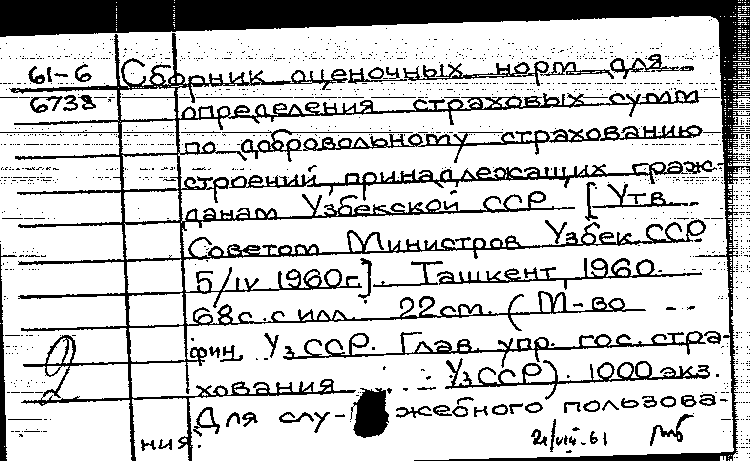 61-6 Сборник оценочных норм для
6738 определения страховых сумм
по добровольному страхованию
строений, принадлежащих граж-
данам Узбекской ССР. [Утв.
Советом Министров Узбек. ССР
5/IV 1960г.]. Ташкент, 1960.
68с. с илл. 22см. (М-во
фин. УзССР. Глав. упр. гос. стра-
хования УзССР). 1000 экз.
2
Для слу- жебного пользова-
ния.
21/VIII-61